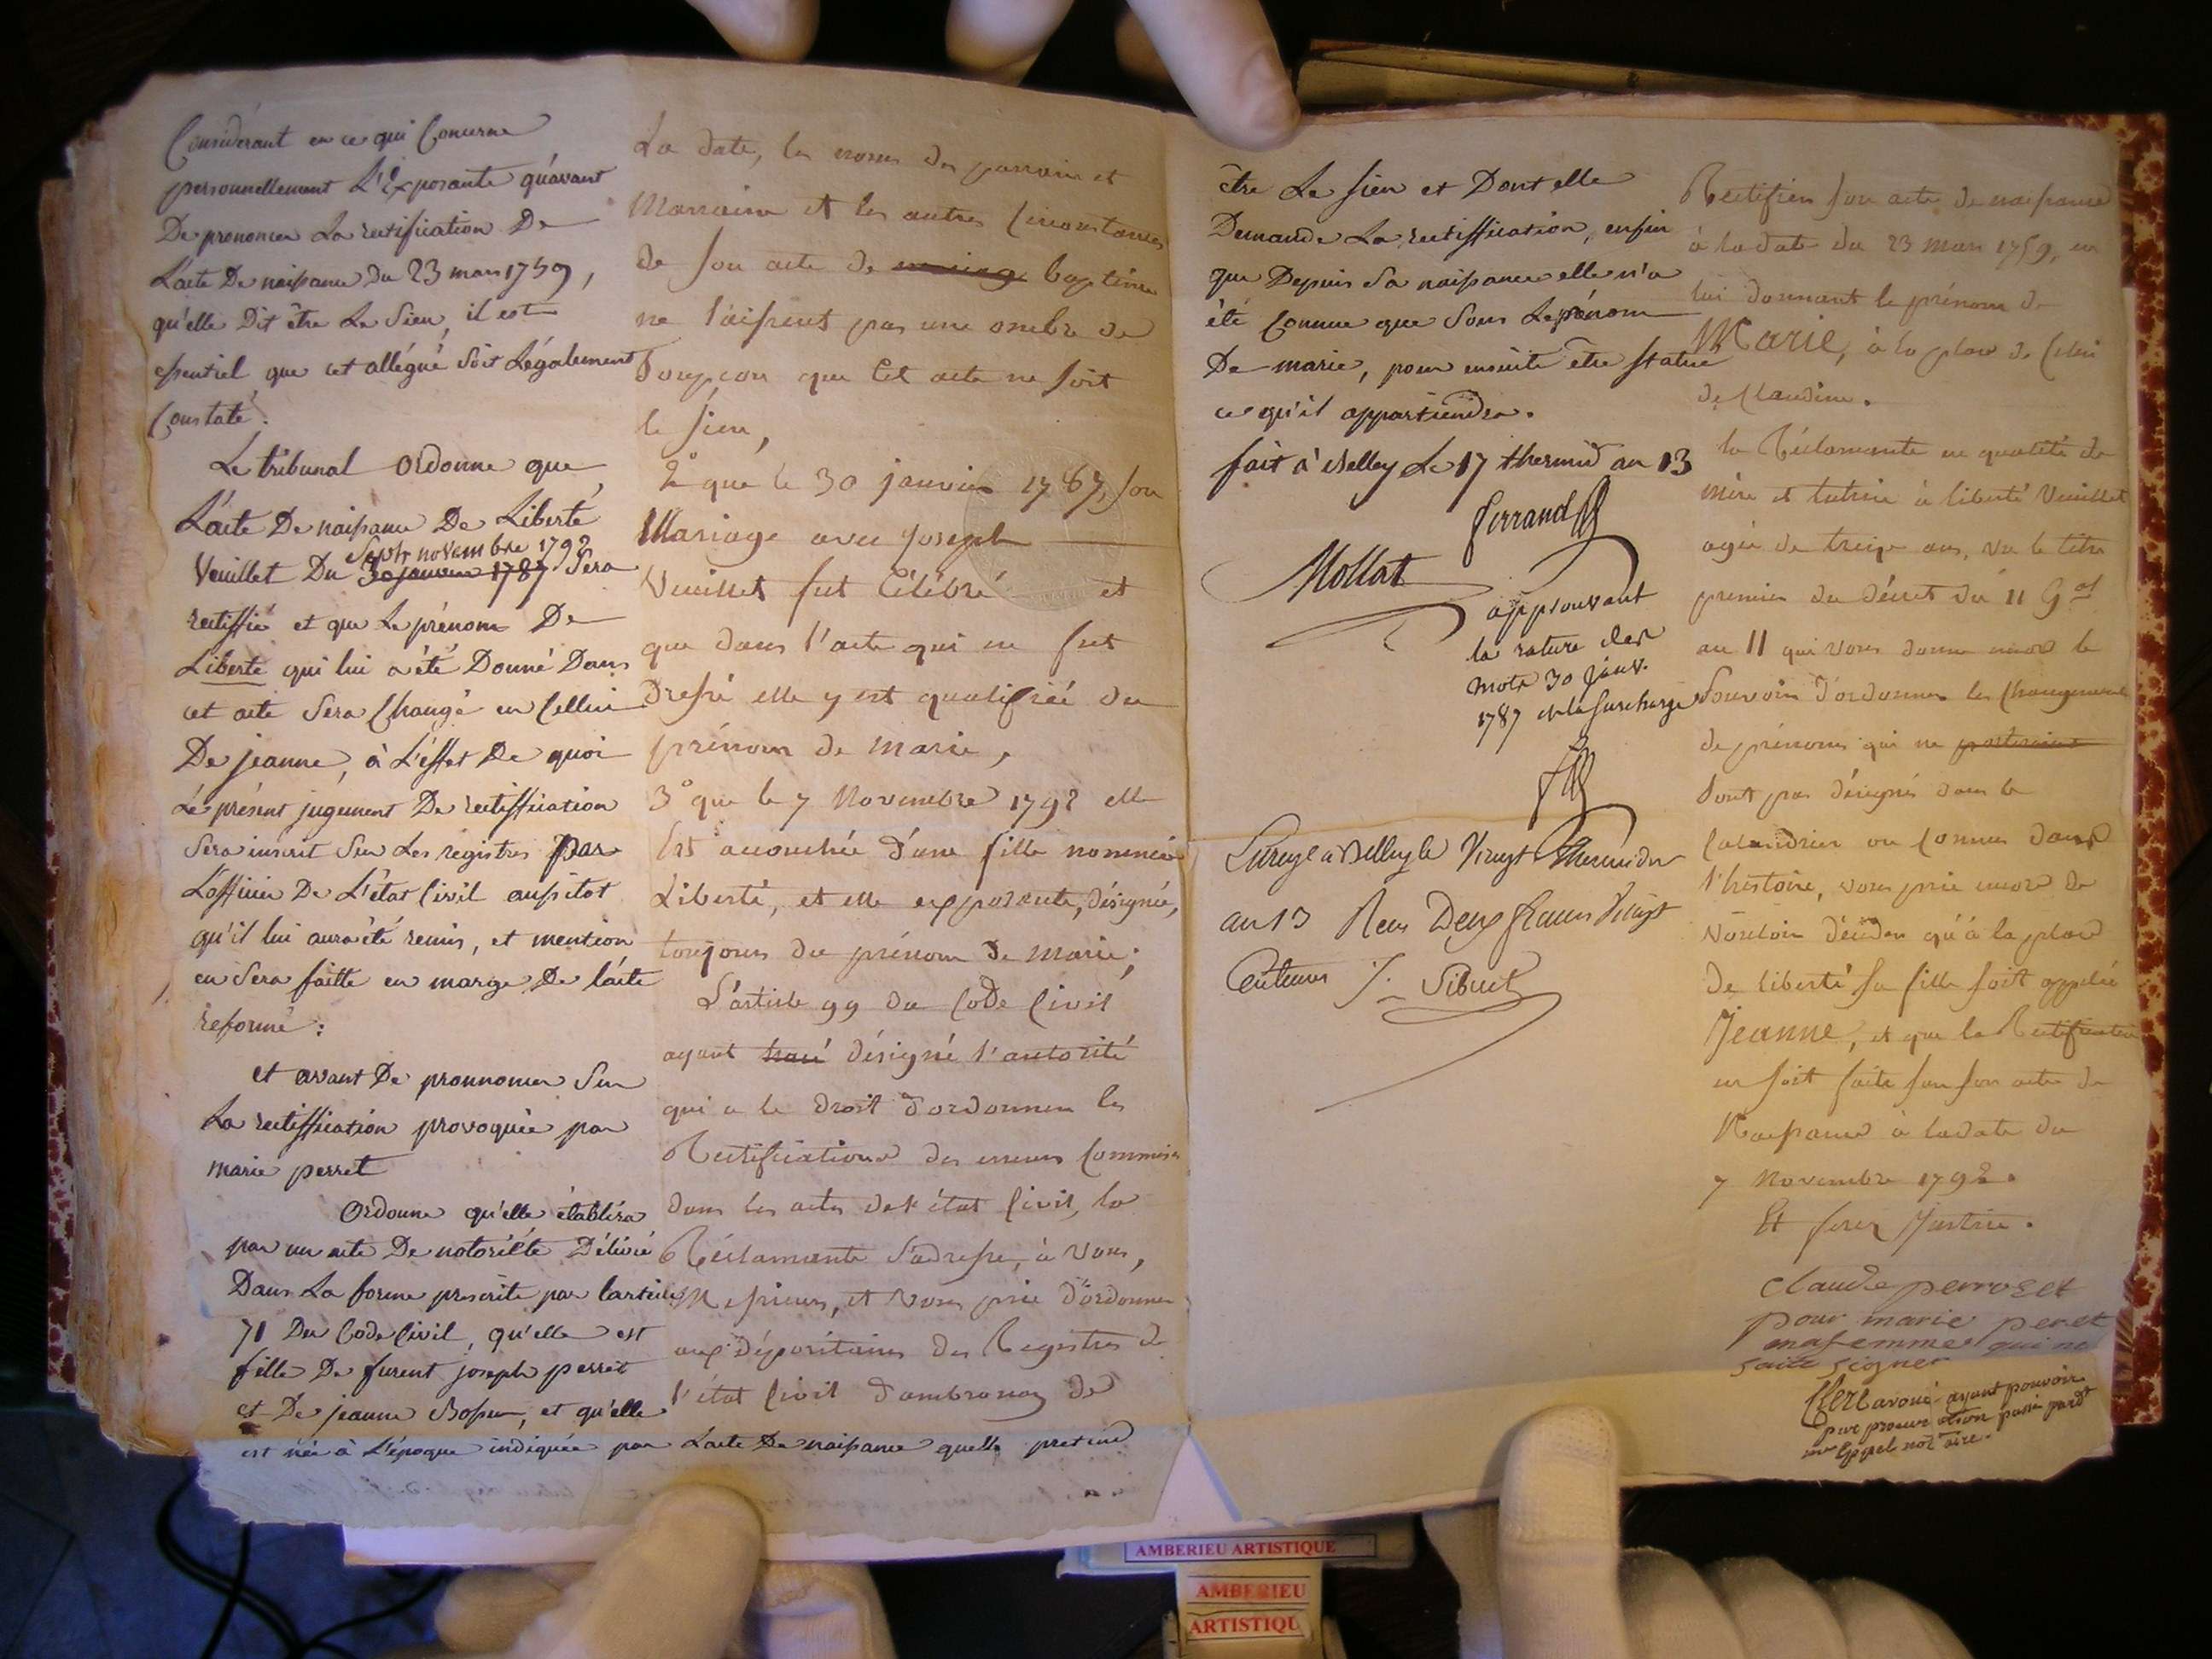 Considérant en ce qui Concerne
personnellement L'Exposante qu'avant
De prononcer La rectification De
L'acte De naissance Du 23 mars 1759,
qu'elle Dit être Le Sien, il est
essentiel que cet allégué soit Légalement
Constaté.
Le tribunal ordonne que
L'acte De naissance De Liberté
Sept novembre 1792
Veuillet Du 30 janvier 1787 Sera
rectiffié et que Le prénom De
Liberté qui lui a été Donné Dans
cet acte Sera Changé en Cellui
De jeanne, à L'éffet De quoi
Le présent jugement De rectiffication
Sera inscrit Sur Les registres par
L'officier De L'état Civil aussitot
qu'il lui aura été remis, et mention
en Sera faitte en marge De l'acte
reformé :
et avant De pronnoncer Sur
La rectiffication provoquée par
marie perret
Ordonne qu'elle établira
par un acte De notoriété Délivré
Dans La forme prescrite par l'article
71 Du Code Civil, qu'elle est
fille De furent joseph perret
et De jeanne Bossu, et qu'elle
est née à L'époque indiquée par L'acte De naissance quelle pretend
La date, les noms des parrain et
Marraine et les autres Circonstances
de son acte de mariage baptême
ne laissent pas une ombre de
Soupçon que Cet acte ne soit
le sien,
2° que le 30 janvier 1787, son
Mariage avec Joseph
Veuillet fut Célébré et
que dans l'acte qui en fut
Dressé elle y est qualifiée du
prénom de marie,
3° que le 7 Novembre 1792 elle
Est accouchée d'une fille nommée
Liberté, et elle exposante, désignée,
toujours du prénom de marie;
L'article 99 du Code Civil
ayant désigné l'autorité
qui a le droit d'ordonner les
Rectifications des erreurs Commises
dans les actes de l'état Civil, la
Réclamante s'adresse, à vous,
Messieurs, et vous prie d'ordonner
aux dépositaires des Registres de
l'état Civil d'ambronay de
être Le sien et Dont elle
Demande La rectiffication, enfin
que Depuis Sa naissance elle n'a
été Connue que Sous Le prénom
De marie, pour ensuite être statué
ce qu'il appartiendra.
fait à Belley Le 17 thermid an 13
ferrand
Mollat
approuvant
la rature des
mots 30 janv.
1787 et la surcharge
Enregé a Belley le Vingt Thermidor
an 13 Reçu Deux francs Vingt
Centimes J. Sibuet
Rectifier son acte de naissance
à la date du 23 mars 1759, en
lui donnant le prénom de
Marie, à la place de Celui
de Claudine.
la Réclamante en qualité de
mère et tutrice à liberté Veuillet
agée de treize ans, vu le titre
premier du décret du 11 Gal
an 11 qui vous donne encore le
Pouvoir d'ordonner les Changements
de prénoms qui ne
sont pas désignés dans le
Calendrier ou Connus dans
l'histoire, vous prie encore de
vouloir décider qu'à la place
de liberté sa fille soit appelée
Jeanne, et que la Rectification
en soit faite sur son acte de
Naissance à la date du
7 Novembre 1792.
Et ferez Justice.
claude perrozet
pour marie peret
ma femme qui ne
sait signer
Clerc avoué ayant pouvoir
par procuration passée pardt
me Appel notaire.
AMBERIEU ARTISTIQUE
AMBERIEU
ARTISTIQU